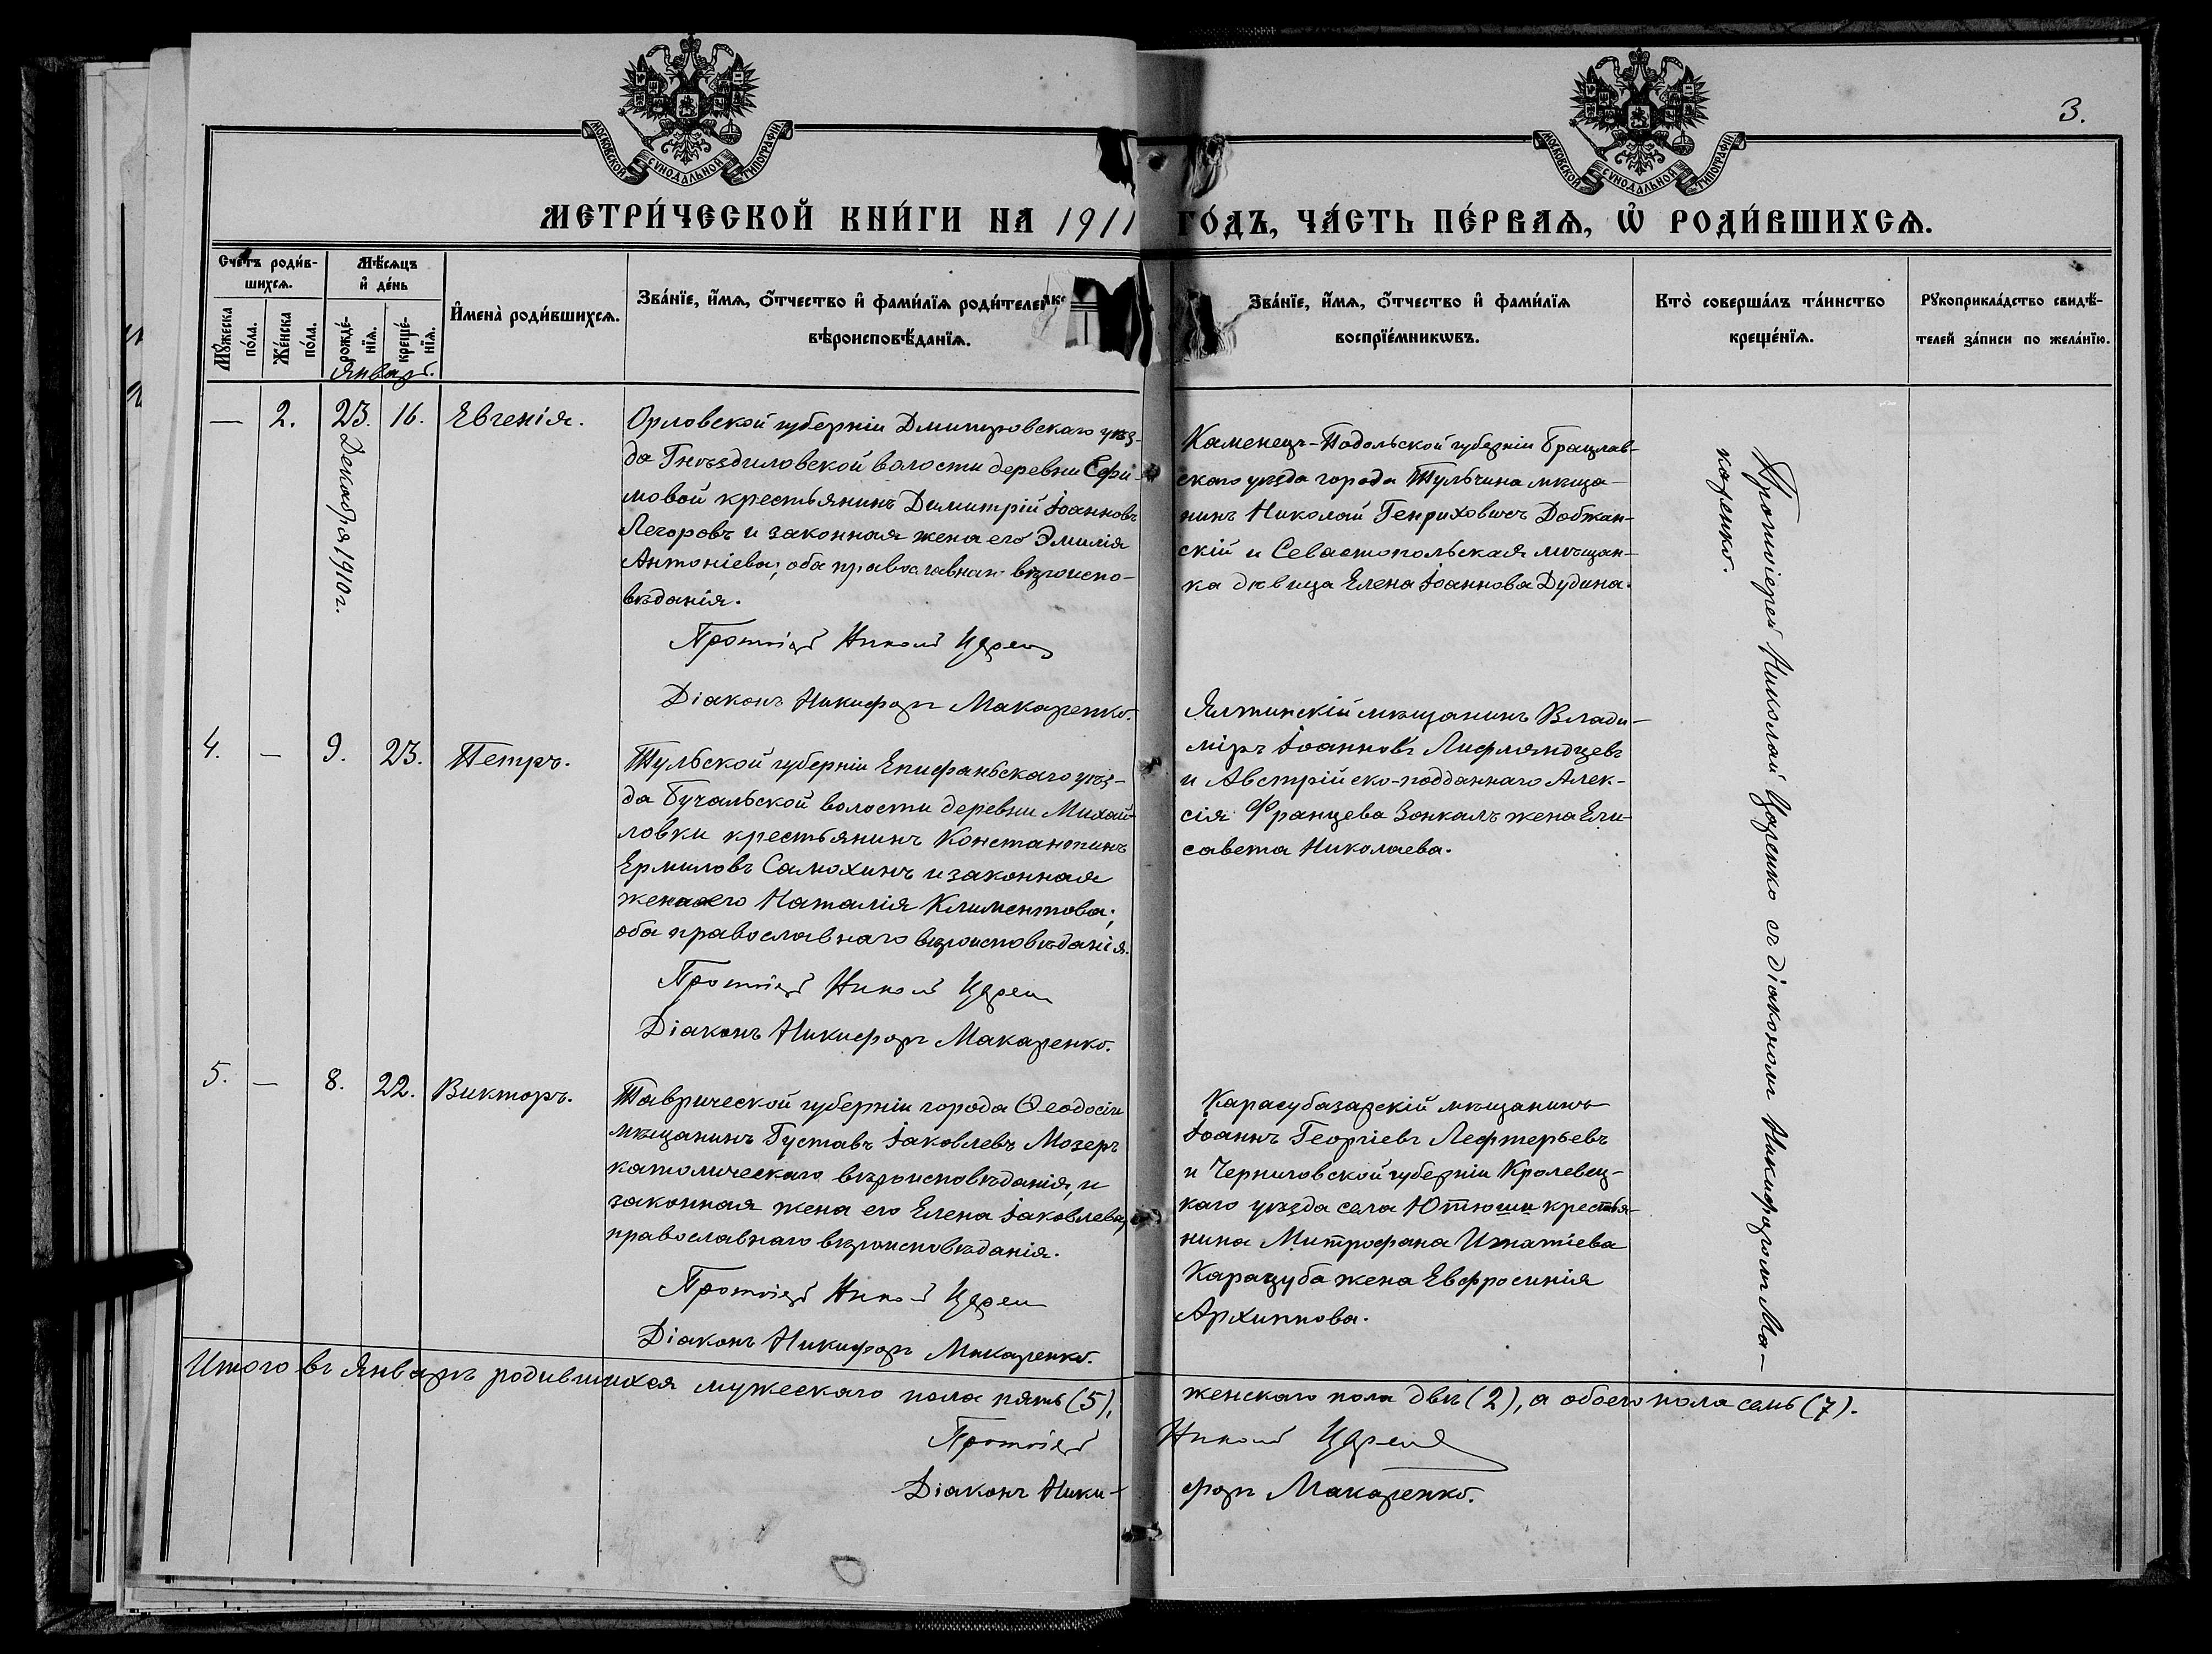 3.
МОСКОВСКОЙ СУНОДАЛЬНОЙ ТИПОГРАФІИ
МОСКОВСКОЙ СУНОДАЛЬНОЙ ТИПОГРАФІИ
МЕТРИ́ЧЕСКОЙ КНИ́ГИ НА 1911 ГО́ДЪ, ЧА́СТЬ ПЕ́РВАѦ, Ѡ҆ РОДИ́ВШИХСѦ.
Сче́тъ роди́в-
шихсѧ.
Мꙋ́жеска
по́ла.
Же́нска
по́ла.
Мѣ́сѧцъ
и҆ де́нь
рожде́-
нїѧ.
креще́-
нїѧ.
Январь.
И҆мена̀ роди́вшихсѧ.
Зва́нїе, и҆́мѧ, ѻ҆́тчество и҆ фами́лїѧ роди́телей
вѣроисповѣ́данїѧ.
Зва́нїе, и҆́мѧ, ѻ҆́тчество и҆ фами́лїѧ
воспрїе́мникѡвъ.
Кто̀ соверша́лъ та́инство
креще́нїѧ.
Рꙋкоприкла́дство свидѣ́-
телей за́писи по жела́нїю.
— 2. 23. 16. Евгенія.
Декабря 1910 г.
Орловской губерніи Дмитровскаго уѣз-
да Гнѣздиловской волости деревни Ефи-
мовой крестьянинъ Димитрій Іоанновъ
Легоровъ и законная жена его Эмилія
Антоніева; оба православнаго вѣроиспо-
вѣданія.
Протоіерей Николай Царенко
Діаконъ Никифоръ Макаренко.
Каменецъ-Подольской губерніи Брацлав-
скаго уѣзда города Тульчина мѣща-
нинъ Николай Генриховичъ Добжан-
скій и Севастопольская мѣщан-
ка дѣвица Елена Іоаннова Дудина.
Протоіерей Николай Царенко съ діакономъ Никифоромъ Ма-
каренко.
4. — 9. 23. Петръ.
Тульской губерніи Епифаньскаго уѣз-
да Бучальской волости деревни Михай-
ловки крестьянинъ Константинъ
Ермиловъ Самохинъ и законная
жена его Наталія Климентова;
оба православнаго вѣроисповѣданія.
Протоіерей Николай Царенко
Діаконъ Никифоръ Макаренко.
Ялтинскій мѣщанинъ Влади-
міръ Іоанновъ Лифляндцевъ
и Австрійско-подданнаго Алек-
сія Францева Зонкалъ жена Ели-
савета Николаева.
5. — 8. 22. Викторъ.
Таврической губерніи города Ѳеодосіи
мѣщанинъ Густавъ Іаковлевъ Мозеръ
католическаго вѣроисповѣданія, и
законная жена его Елена Іаковлева,
православнаго вѣроисповѣданія.
Протоіерей Николай Царенко
Діаконъ Никифоръ Макаренко.
Карасубазарскій мѣщанинъ
Іоаннъ Георгіевъ Лефтерьевъ
и Черниговской губерніи Кролевец-
каго уѣзда села Ютюши крестья-
нина Митрофана Игнатіева
Карацуба жена Евфросинія
Архиппова.
Итого въ Январѣ родившихся мужескаго пола пять (5), женскаго пола двѣ (2), а обоего пола семь (7).
Протоіерей Николай Царенко
Діаконъ Никифоръ Макаренко.